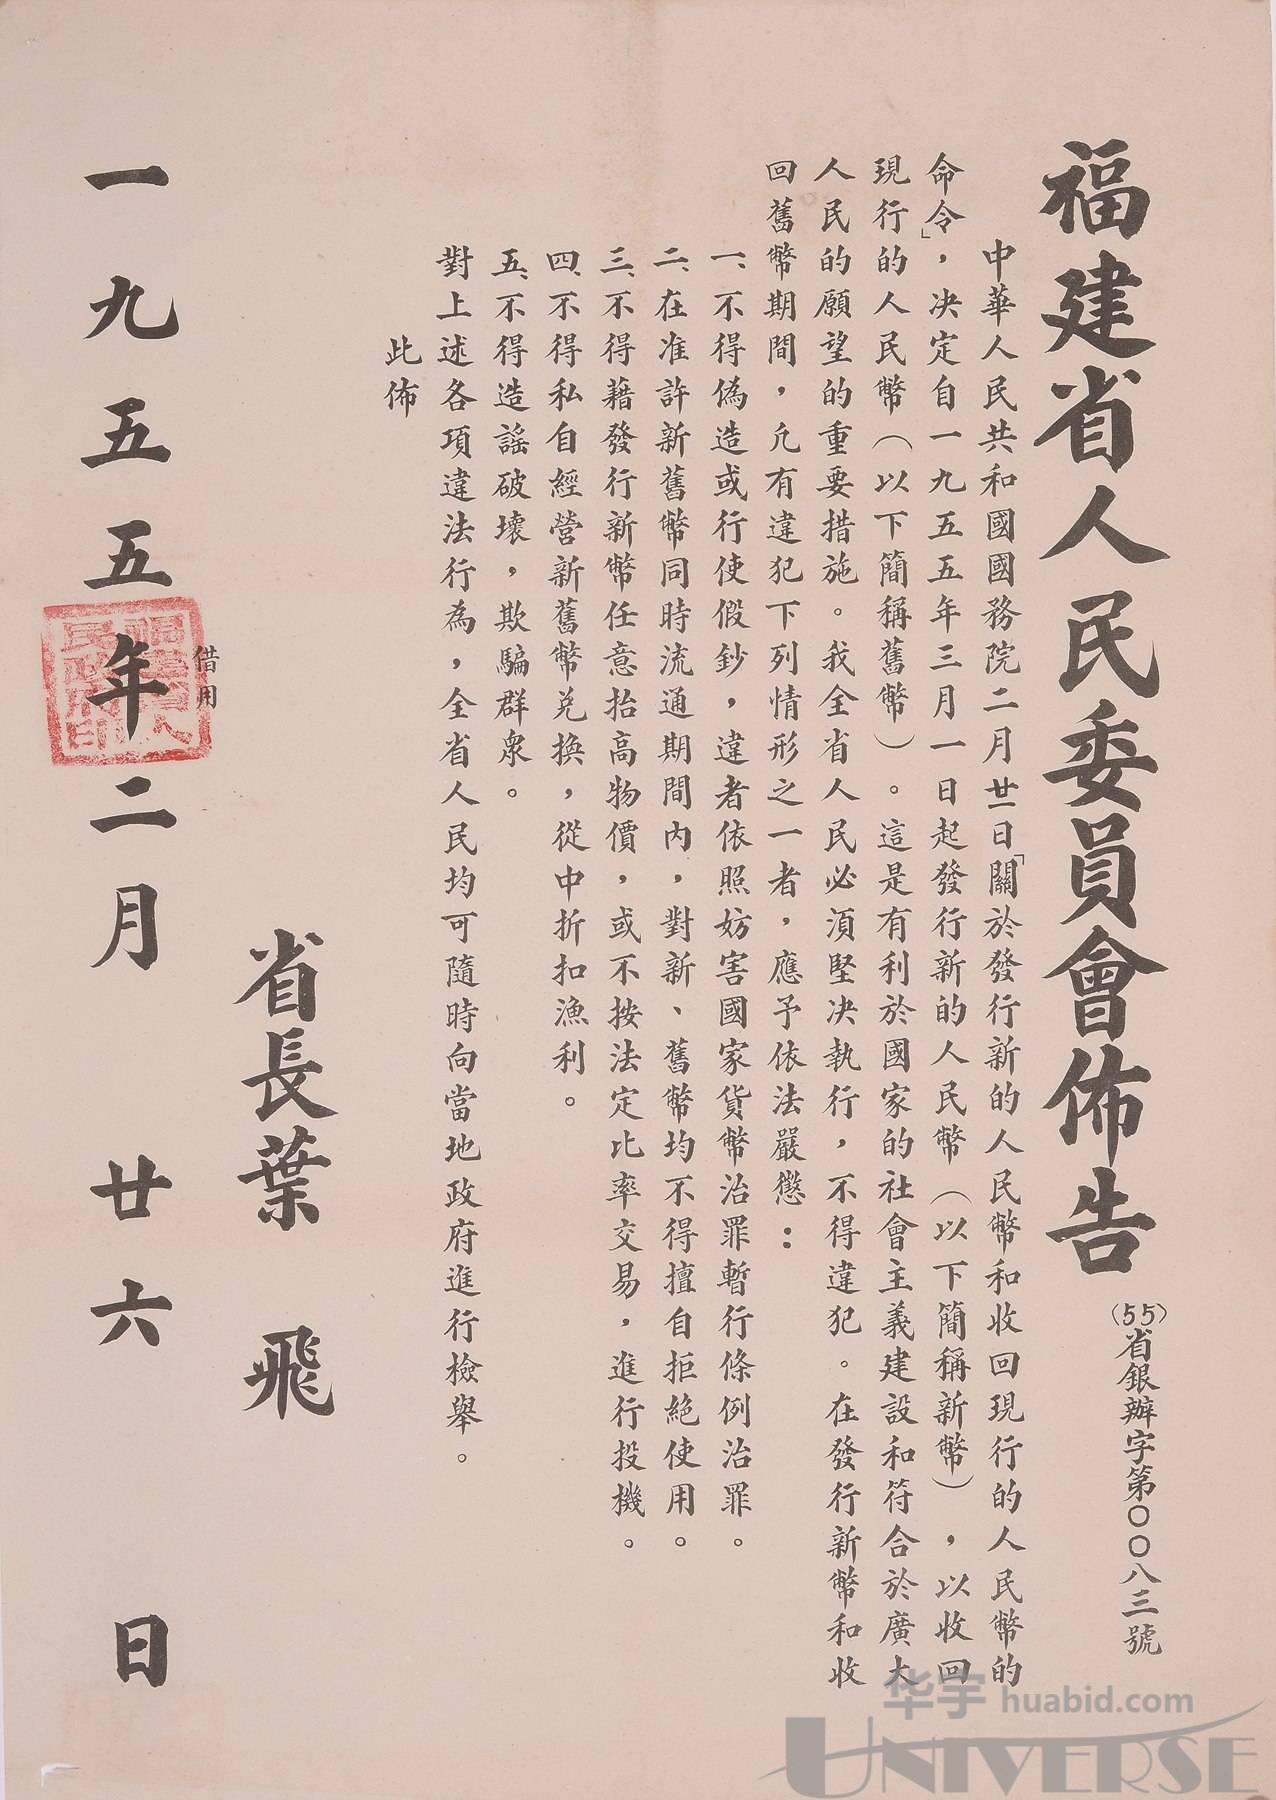 福建省人民委員會佈告
(55)省銀辦字第〇〇八三號
中華人民共和國國務院二月廿一日「關於發行新的人民幣和收回現行的人民幣的
命令」，决定自一九五五年三月一日起發行新的人民幣（以下簡稱新幣），以收回
現行的人民幣（以下簡稱舊幣）。這是有利於國家的社會主義建設和符合於廣大
人民的願望的重要措施。我全省人民必須堅决執行，不得違犯。在發行新幣和收
回舊幣期間，凡有違犯下列情形之一者，應予依法嚴懲：
一、不得偽造或行使假鈔，違者依照妨害國家貨幣治罪暫行條例治罪。
二、在准許新舊幣同時流通期間內，對新、舊幣均不得擅自拒絶使用。
三、不得藉發行新幣任意抬高物價，或不按法定比率交易，進行投機。
四、不得私自經營新舊幣兌換，從中折扣漁利。
五、不得造謠破壞，欺騙群衆。
對上述各項違法行為，全省人民均可隨時向當地政府進行檢舉。
此佈
省長葉飛
借用
一九五五年二月廿六日
福建省人民政府印
华宇 huabid.com
UNIVERSE